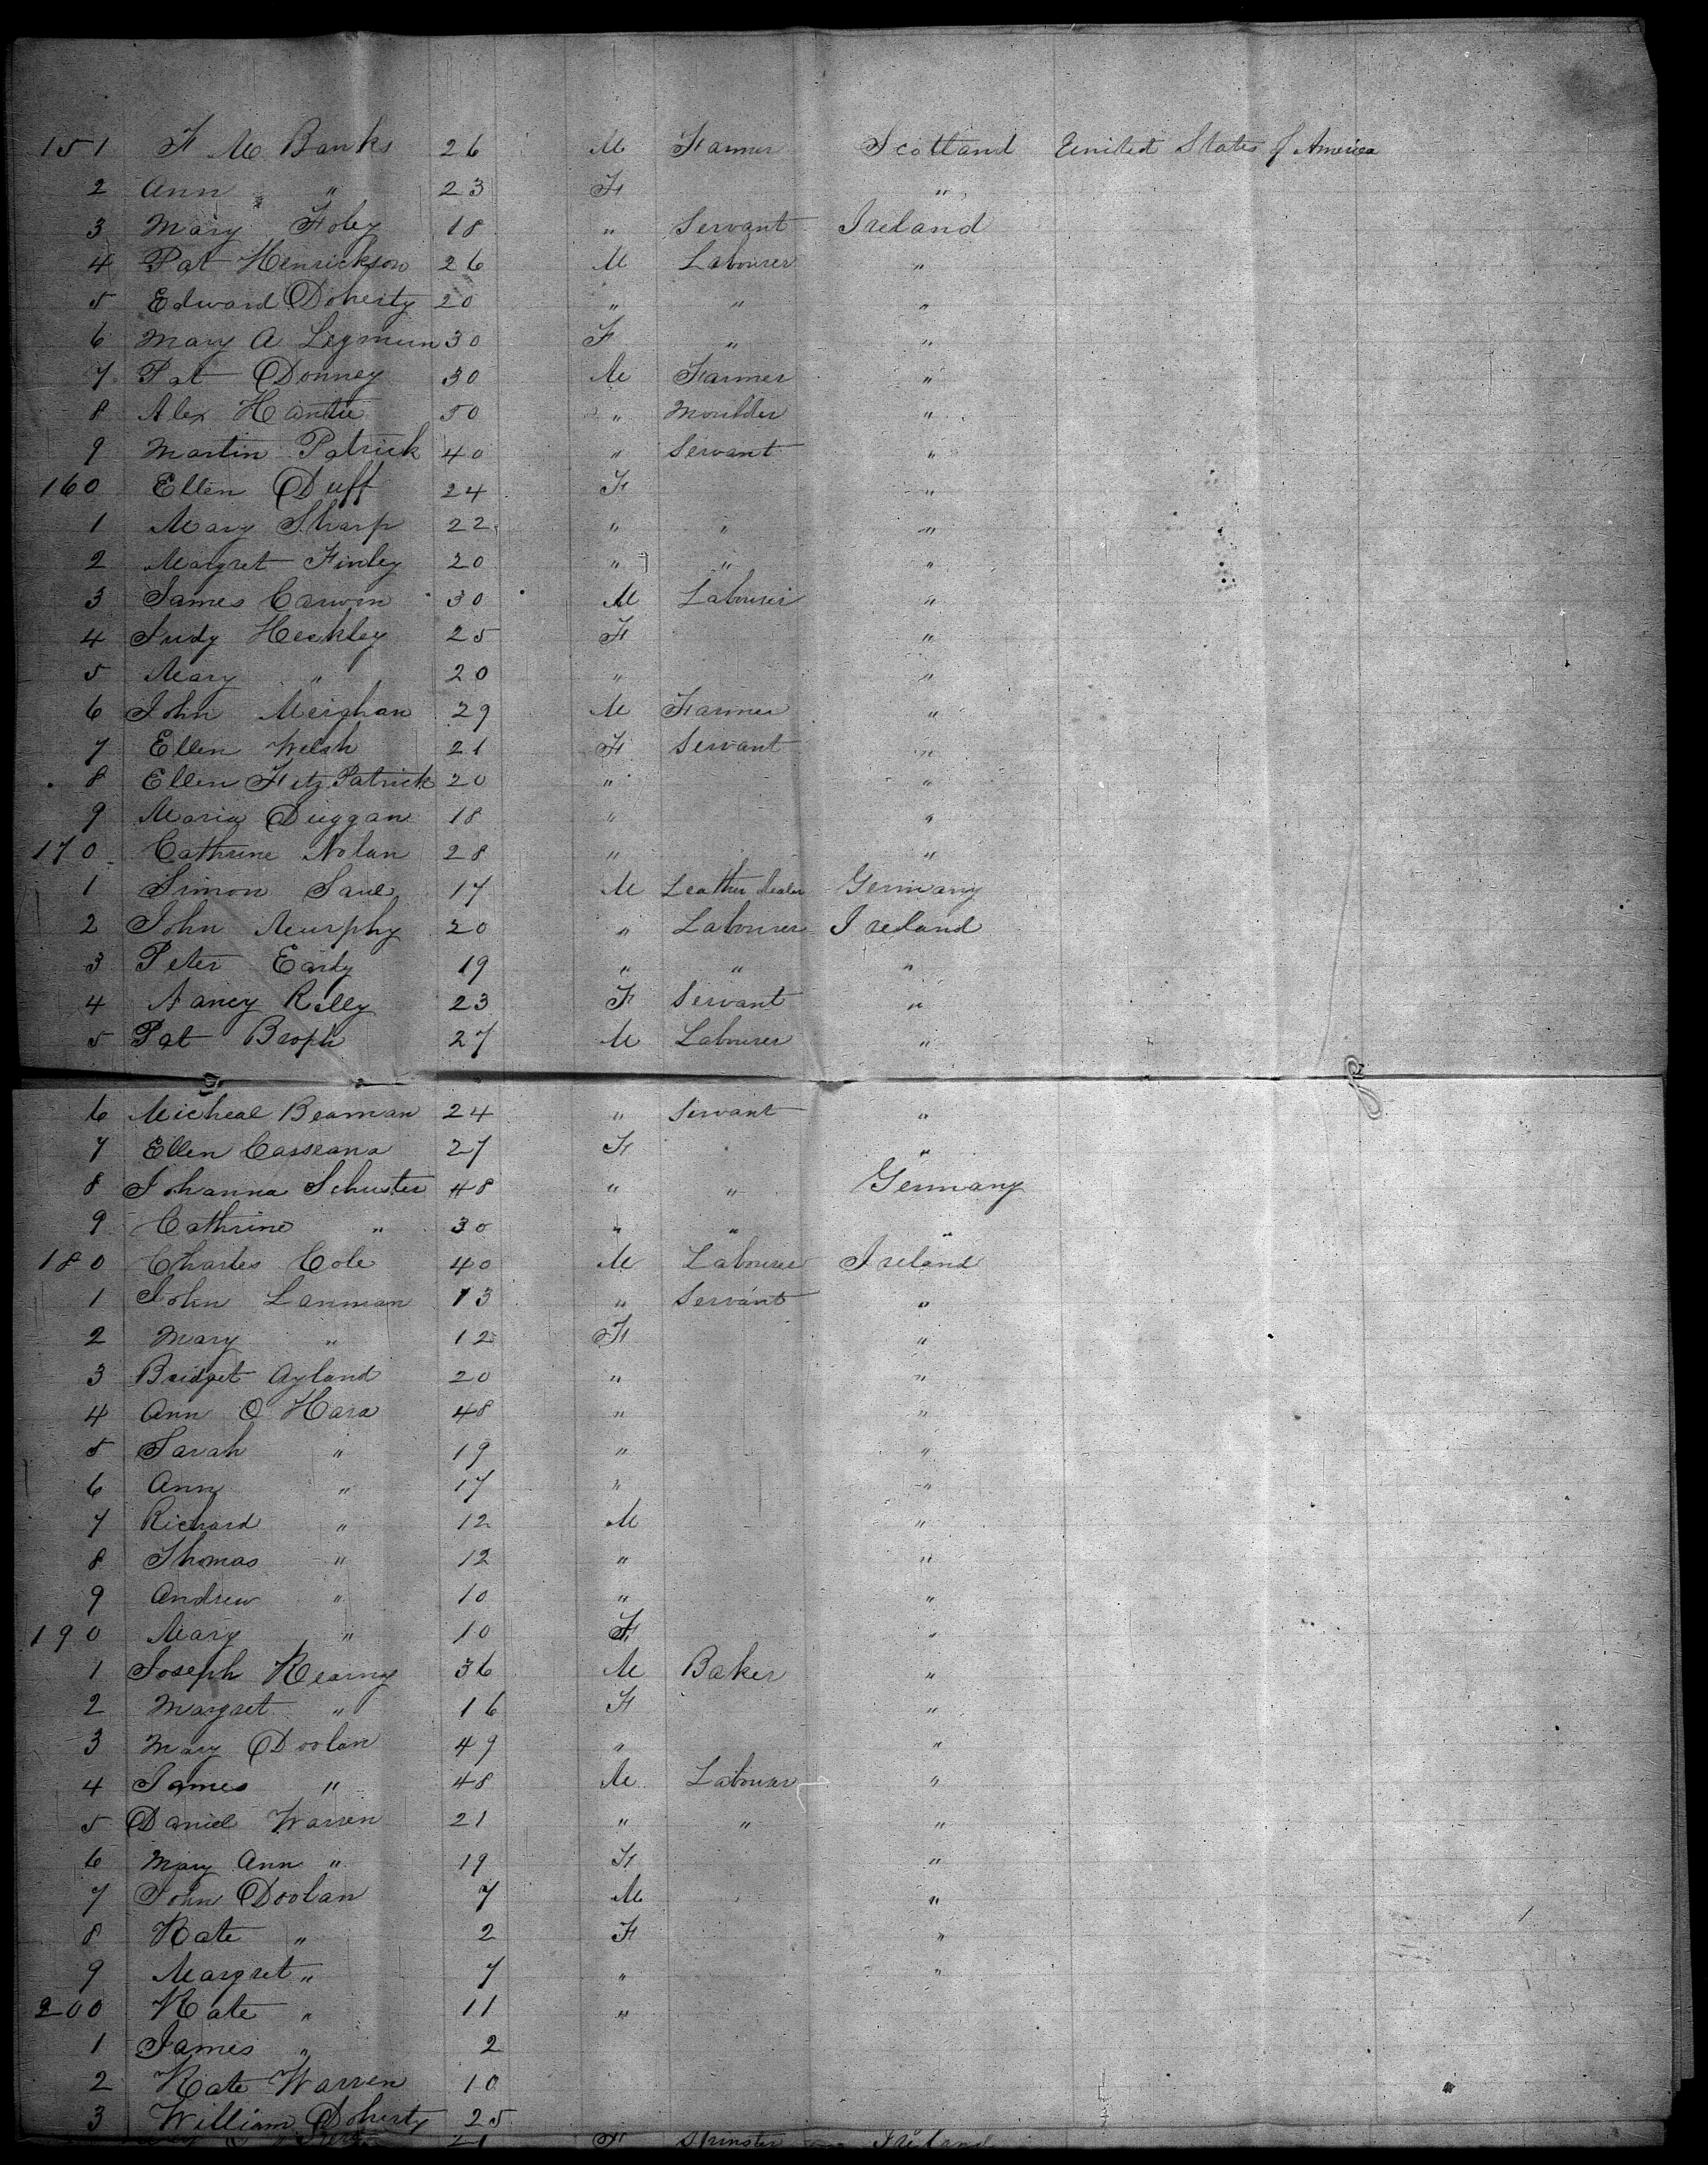 151 F M Banks 26 M Farmer Scotland United States of America
2 Ann " 23 F "
3 Mary Foley 18 " Servant Ireland
4 Pat Henrickson 26 M Labourer "
5 Edward Doherty 20 " " "
6 Mary A 30 F " "
7 Pat Donney 30 M Farmer "
8 Alex 50 " Moulder "
9 Martin Patrick 40 " Servant "
160 Ellen Duff 24 F "
1 Mary Sharp 22 " " "
2 Margret Finley 20 " " "
3 James 30 M Labourer "
4 Judy Heckley 25 F "
5 Mary " 20 " "
6 John Meighan 29 M Farmer "
7 Ellen Welsh 21 F Servant "
8 Ellen Fitz Patrick 20 " "
9 Maria Duggan 18 " "
170 Cathrine Nolan 28 " "
1 Simon Saul 17 M Leather dealer Germany
2 John Murphy 20 " Labourer Ireland
3 Peter Early 19 " " "
4 Nancy Rilly 23 F Servant "
5 Pat Broph 27 M Labourer "
6 Micheal Beaman 24 " Servant "
7 Ellen Casseana 27 F "
8 Johanna Schuster 48 " " Germany
9 Cathrine " 30 " " "
180 Charles Cole 40 M Labourer Ireland
1 John Lanman 13 " Servant "
2 Mary " 12 F "
3 Bridget Ayland 20 " "
4 Ann O Hara 48 " "
5 Sarah " 19 " "
6 Ann " 17 " "
7 Richard " 12 M "
8 Thomas " 12 " "
9 Andrew " 10 " "
190 Mary " 10 F "
1 Joseph Kearny 36 M Baker "
2 Margret " 16 F "
3 Mary Doolan 49 " "
4 James " 48 M Labourer "
5 Daniel Warren 21 " " "
6 Mary Ann " 19 F "
7 John Doolan 7 M "
8 Kate " 2 F "
9 Margret " 7 " "
200 Kate " 11 "
1 James " 2
2 Kate Warren 10
3 William Doherty 25
21 F Spinster Ireland